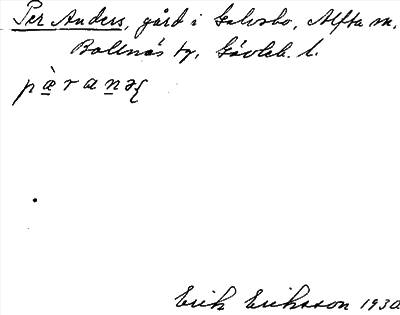 Per Anders, gård i Galvsbo, Alfta sn,
Bollnäs tg, Gävleb. l.
pæ̀ranəʂ
Erik Eriksson 1930